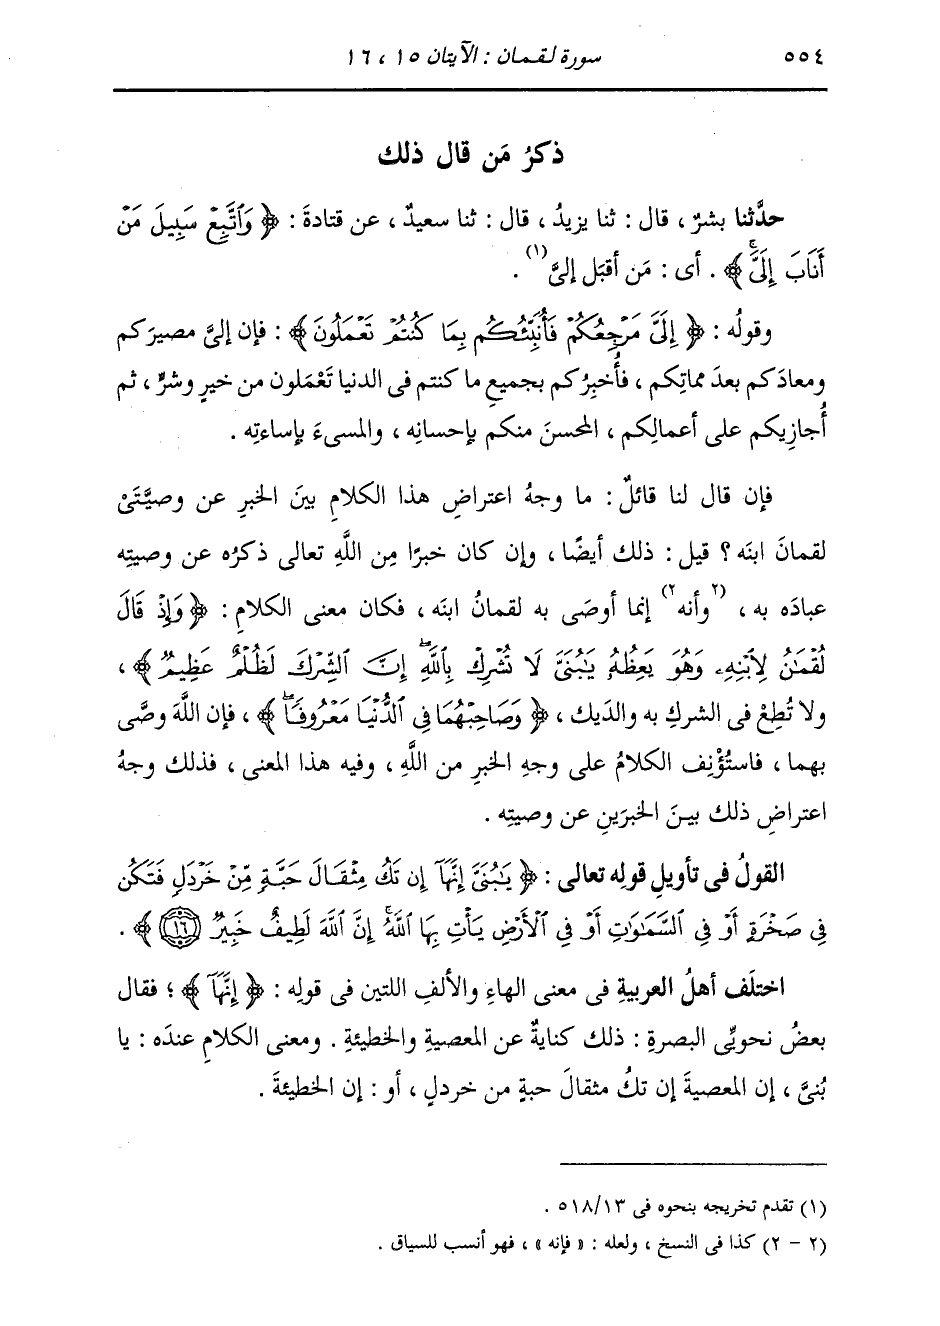 ٥٥٤ سورة لقمان : الآيتان ١٥ ، ١٦
ذكرُ مَن قال ذلك
حدَّثنا بشرٌ ، قال : ثنا يزيدُ ، قال : ثنا سعيدٌ ، عن قتادةَ : ﴿ وَٱتَّبِعْ سَبِيلَ مَنْ
أَنَابَ إِلَىَّۚ ﴾ . أى : مَن أقبَل إلىَّ(١) .
وقولُه : ﴿ إِلَىَّ مَرْجِعُكُمْ فَأُنَبِّئُكُم بِمَا كُنتُمْ تَعْمَلُونَ ﴾ : فإن إلىَّ مصيرَكم
ومعادَكم بعدَ مماتِكم ، فأُخبِرُكم بجميعِ ما كنتم فى الدنيا تَعْمَلون من خيرٍ وشرٍّ ، ثم
أُجازِيكم على أعمالِكم ، المحسنَ منكم بإحسانِه ، والمسىءَ بإساءتِه .
فإن قال لنا قائلٌ : ما وجهُ اعتراضِ هذا الكلامِ بينَ الخبرِ عن وصيَّتَىْ
لقمانَ ابنَه ؟ قيل : ذلك أيضًا ، وإن كان خبرًا مِن اللَّهِ تعالى ذكرُه عن وصيتِه
عبادَه به ، (٢وأنه٢) إنما أوصَى به لقمانُ ابنَه ، فكان معنى الكلامِ : ﴿ وَإِذْ قَالَ
لُقْمَـٰنُ لِٱبْنِهِۦ وَهُوَ يَعِظُهُۥ يَـٰبُنَىَّ لَا تُشْرِكْ بِٱللَّهِۖ إِنَّ ٱلشِّرْكَ لَظُلْمٌ عَظِيمٌ ﴾ ،
ولا تُطِعْ فى الشركِ به والدَيك ، ﴿ وَصَاحِبْهُمَا فِى ٱلدُّنْيَا مَعْرُوفًاۖ ﴾ ، فإن اللَّهَ وصَّى
بهما ، فاستُؤْنِف الكلامُ على وجهِ الخبرِ من اللَّهِ ، وفيه هذا المعنى ، فذلك وجهُ
اعتراضِ ذلك بينَ الخبرَينِ عن وصيتِه .
القولُ فى تأويلِ قولِه تعالى : ﴿ يَـٰبُنَىَّ إِنَّهَآ إِن تَكُ مِثْقَالَ حَبَّةٍ مِّنْ خَرْدَلٍ فَتَكُن
فِى صَخْرَةٍ أَوْ فِى ٱلسَّمَـٰوَٰتِ أَوْ فِى ٱلْأَرْضِ يَأْتِ بِهَا ٱللَّهُۚ إِنَّ ٱللَّهَ لَطِيفٌ خَبِيرٌ ۝١٦ ﴾ .
اختلَف أهلُ العربيةِ فى معنى الهاءِ والألفِ اللتين فى قولِه : ﴿ إِنَّهَآ ﴾ ؛ فقال
بعضُ نحويِّى البصرةِ : ذلك كنايةٌ عن المعصيةِ والخطيئةِ . ومعنى الكلامِ عندَه : يا
بُنىَّ ، إن المعصيةَ إن تكُ مثقالَ حبةٍ من خردلٍ ، أو : إن الخطيئةَ .
(١) تقدم تخريجه بنحوه فى ٥١٨/١٣ .
(٢ - ٢) كذا فى النسخ ، ولعله : « فإنه » ، فهو أنسب للسياق .